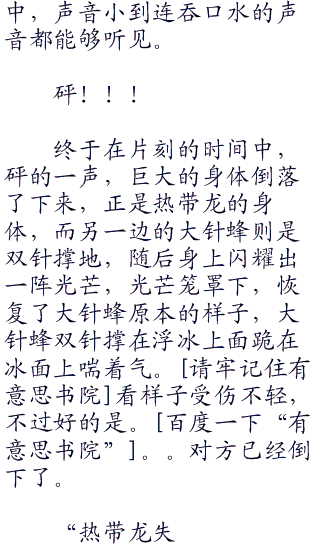 中，声音小到连吞口水的声
音都能够听见。
砰！！！
终于在片刻的时间中，
砰的一声，巨大的身体倒落
了下来，正是热带龙的身
体，而另一边的大针蜂则是
双针撑地，随后身上闪耀出
一阵光芒，光芒笼罩下，恢
复了大针蜂原本的样子，大
针蜂双针撑在浮冰上面跪在
冰面上喘着气。[请牢记住有
意思书院]看样子受伤不轻，
不过好的是。[百度一下“有
意思书院”]。。对方已经倒
下了。
“热带龙失